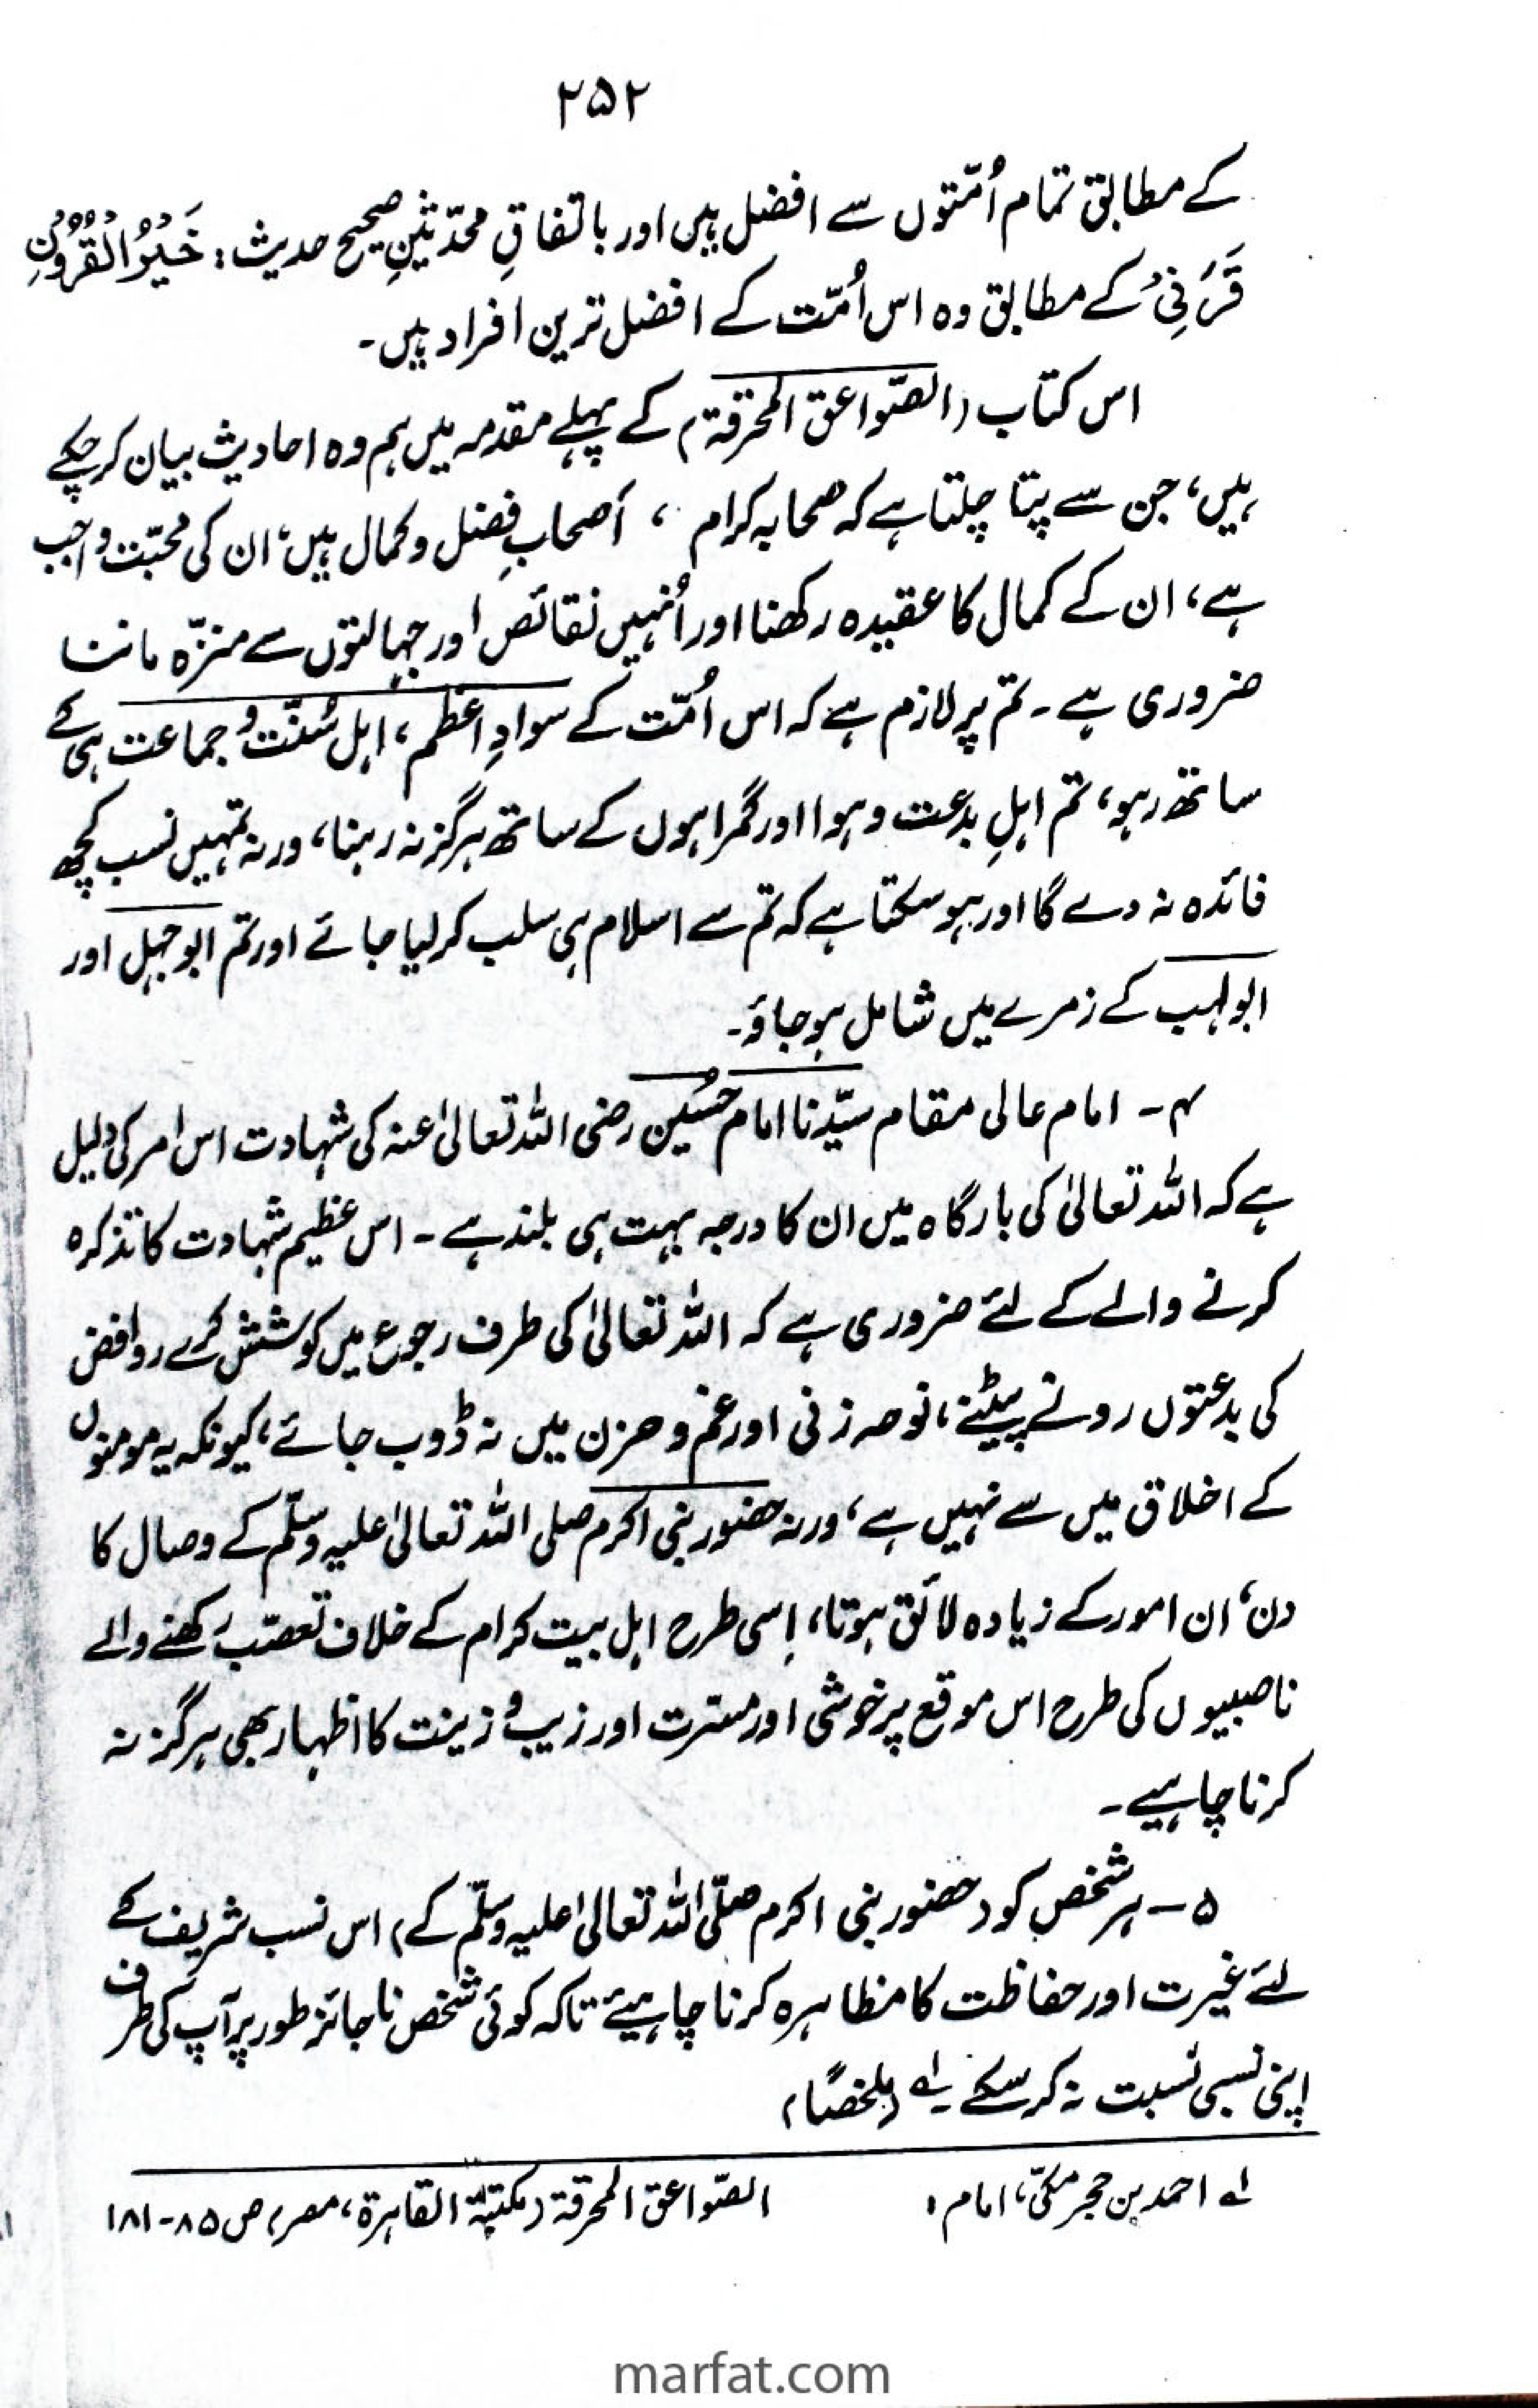 ۲۵۲
کے مطابق تمام اُمّتوں سے افضل ہیں اور باتفاقِ محدّثینِ صحیح حدیث: خَیْرُ الْقُرُوْنِ
قَرْنِیْ کے مطابق وہ اس اُمّت کے افضل ترین افراد ہیں۔
اس کتاب (الصّواعق المحرقۃ) کے پہلے مقدمہ میں ہم وہ احادیث بیان کر چکے
ہیں، جن سے پتا چلتا ہے کہ صحابہ کرام ، اَصحابِ فضل و کمال ہیں، ان کی محبّت واجب
ہے، ان کے کمال کا عقیدہ رکھنا اور اُنہیں نقائص اور جہالتوں سے منزّہ ماننا
ضروری ہے۔ تم پر لازم ہے کہ اس اُمّت کے سوادِ اعظم، اہل سُنّت و جماعت ہی کے
ساتھ رہو، تم اہلِ بدعت و ہوا اور گمراہوں کے ساتھ ہرگز نہ رہنا، ورنہ تمہیں نسب کچھ
فائدہ نہ دے گا اور ہو سکتا ہے کہ تم سے اسلام ہی سلب کر لیا جائے اور تم ابوجہل اور
ابولہب کے زمرے میں شامل ہو جاؤ۔
۴۔ امام عالی مقام سیّدنا امام حسُین رضی اللہ تعالیٰ عنہ کی شہادت اس امر کی دلیل
ہے کہ اللہ تعالیٰ کی بارگاہ میں ان کا درجہ بہت ہی بلند ہے۔ اس عظیم شہادت کا تذکرہ
کرنے والے کے لئے ضروری ہے کہ اللہ تعالیٰ کی طرف رجوع میں کوشش کرے روافض
کی بدعتوں رونے پیٹنے، نوحہ زنی اور غم و حزن میں نہ ڈوب جائے، کیونکہ یہ مومنوں
کے اخلاق میں سے نہیں ہے، ورنہ حضور نبی اکرم صلی اللہ تعالیٰ علیہ وسلّم کے وصال کا
دن، ان امور کے زیادہ لائق ہوتا، اِسی طرح اہل بیت کرام کے خلاف تعصّب رکھنے والے
ناصبیوں کی طرح اس موقع پر خوشی اور مسّرت اور زیب و زینت کا اظہار بھی ہرگز نہ
کرنا چاہیے۔
۵۔ ہر شخص کو (حضور نبی اکرم صلّی اللہ تعالیٰ علیہ وسلّم کے) اس نسب شریف کے
لئے غیرت اور حفاظت کا مظاہرہ کرنا چاہیئے تاکہ کوئی شخص ناجائز طور پر آپ کی طرف
اپنی نسبی نسبت نہ کر سکے۔ لے (ملخصًا)
لے احمد بن حجر مکیّ، امام: الصّواعق المحرقۃ (مکتبۃ القاہرۃ، مصر) ص ۸۵-۱۸۱
marfat.com